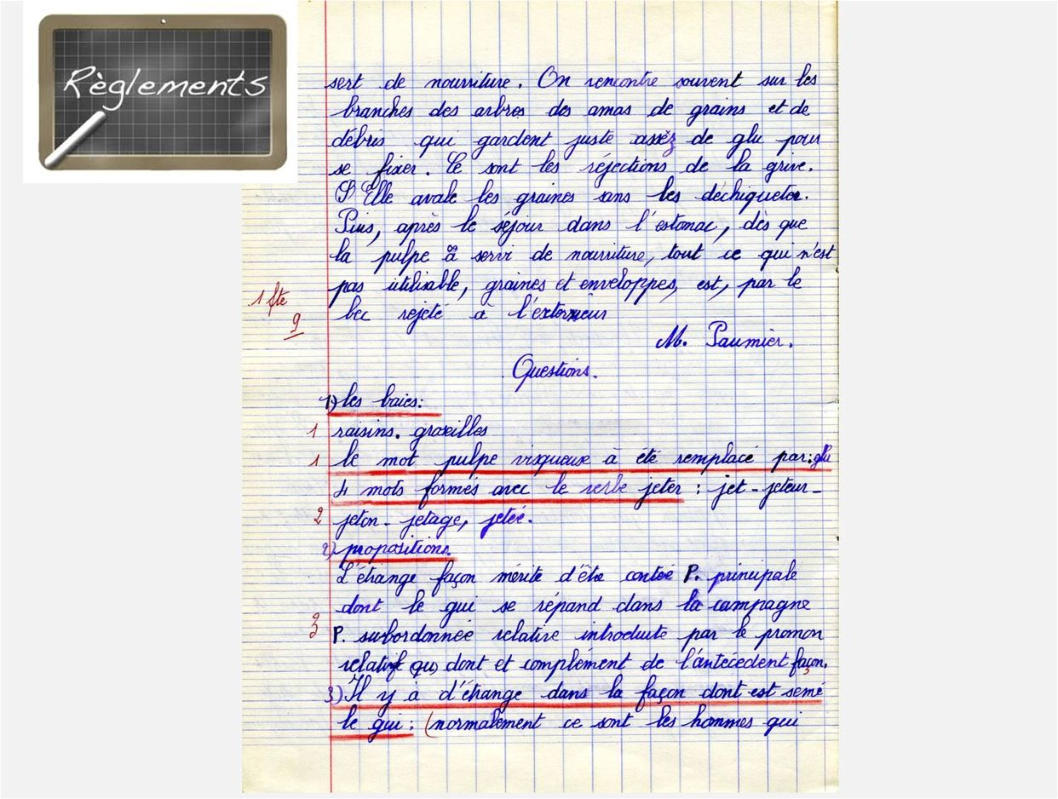 Règlements
sert de nourriture. On rencontre souvent sur les
branches des arbres des amas de grains et de
débris qui gardent juste assez de glu pour
se fixer. Ce sont les réjections de la grive.
Elle avale les graines sans les déchiqueter.
Puis, après le séjour dans l'estomac, dès que
la pulpe à servir de nourriture, tout ce qui n'est
pas utilisable, graines et enveloppes, est, par le
bec rejeté à l'extérieur
1 fte
9
M. Paumier.
Questions.
1) les baies:
1 raisins. groseilles
1 le mot pulpe visqueuse à été remplacé par: glu
4 mots formés avec le verbe jeter : jet - jeteur -
2 jeton - jetage, jetée.
2) propositions
L'étrange façon mérite d'être contée P. principale
dont le gui se répand dans la campagne
3 P. subordonnée relative introduite par le pronom
relatif dont et complément de l'antécédent façon.
3) Il y à d'étrange dans la façon dont est semé
le gui : (normalement ce sont les hommes qui